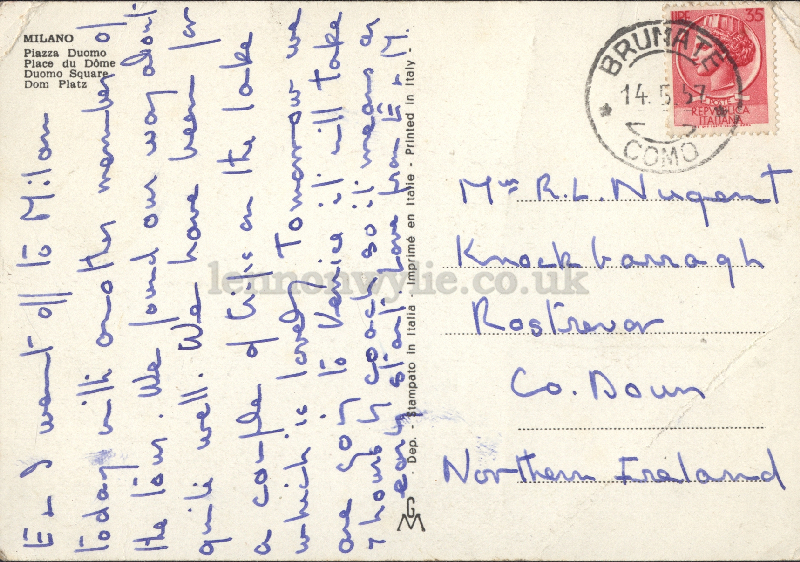 MILANO
Piazza Duomo
Place du Dôme
Duomo Square
Dom Platz
E & I went off to Milan
today with another member of
the tour. We found our way about
quite well. We have been for
a couple of trips on the lake
which is lovely. Tomorrow we
are going to Venice it will take
7 hours by coach so it means an
early start. Love from E & M.
Dep. - Stampato in Italia - Imprimé en Italie - Printed in Italy -
GM
LIRE 35
POSTE
REPVBBLICA
ITALIANA
BRUNATE
14. 5. 57
COMO
Mrs R.L. Nugent
Knockbarragh
Rostrevor
Co. Down
Northern Ireland
lennonwylie.co.uk